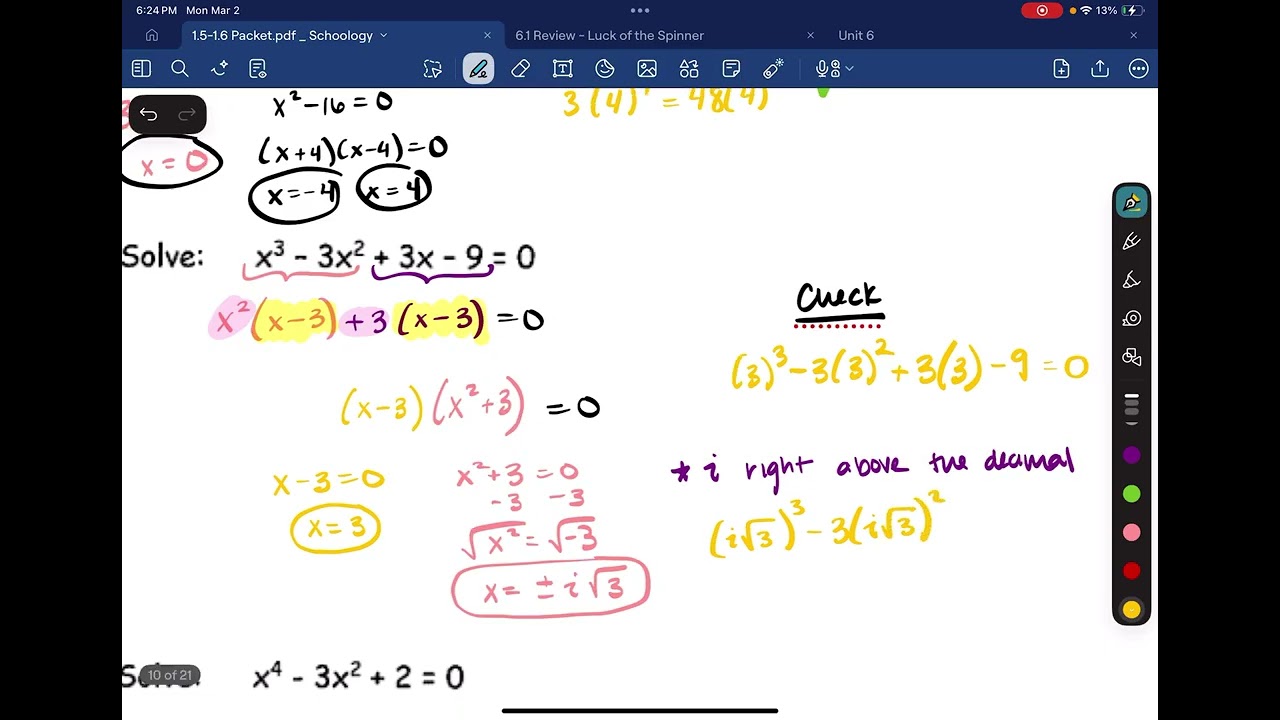 6:24 PM Mon Mar 2
13%
1.5-1.6 Packet.pdf _ Schoology
6.1 Review - Luck of the Spinner
Unit 6
x² - 16 = 0
3(4)³ = 48(4)
(x+4)(x-4) = 0
x = 0
x = -4 x = 4
Solve: x³ - 3x² + 3x - 9 = 0
x²(x-3) + 3(x-3) = 0
(x-3)(x²+3) = 0
x - 3 = 0
x = 3
x² + 3 = 0
-3 -3
√x² = √-3
x = ± i√3
Check
(3)³ - 3(3)² + 3(3) - 9 = 0
* i right above the decimal
(i√3)³ - 3(i√3)²
10 of 21
Solve: x⁴ - 3x² + 2 = 0